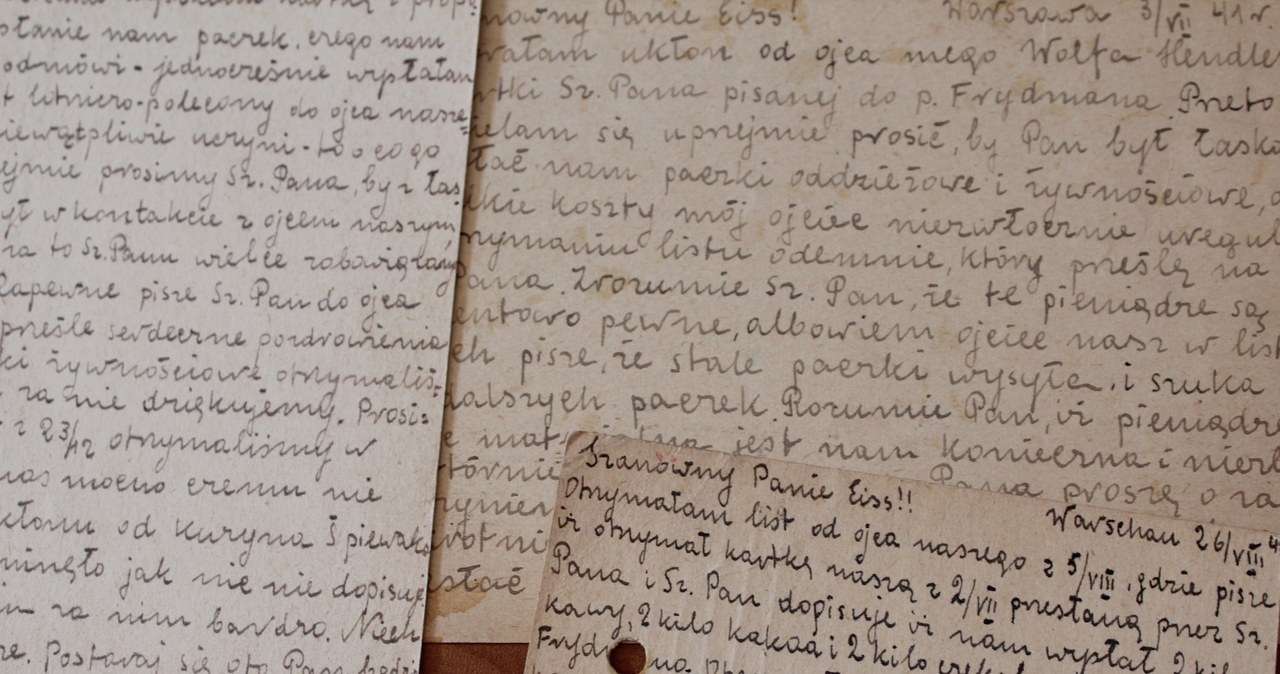 słanie nam paczek, czego nam
odmówi - jednocześnie wpłatam
listniczo-polecony do ojca nasze=
niewątpliwie uczyni - to o co go
ejmie prosimy Sz. Pana, by z łas
ył w kontakcie z ojcem naszym,
za to Sz. Panu wielce zobowiązany
Zapewne pisze Sz. Pan do ojca
prześle serdeczne pozdrowienia
ki żywnościowe otrzymaliś=
za nie dziękujemy. Prosi=
z 23/12 otrzymaliśmy w
nas mocno czemu nie
od Kuzyna Śpiewaka
minęło jak nic nie dopisuje
za nim bardzo. Niech
że. Postaraj się oto Pan będzi
nowny Panie Eiss! Warszawa 3/VII 41 r.
rałam ukłon od ojca mego Wolfa Hendle
rtki Sz. Pana pisanej do p. Frydmana. Przeto
ielam się uprzejmie prosić, by Pan był łaska
łać nam paczki oddzieżowe i żywnościowe, a
elkie koszty mój ojciec niezwłocznie uregul
rzymaniu listu odemnie, który prześlę na
Pana. Zrozumie Sz. Pan, że te pieniądze są
entowo pewne, albowiem ojciec nasz w list
ch pisze, że stale paczki wysyła i szuka
dalszych paczek. Rozumie Pan, iż pieniądze
jest nam konieczna i niezb
Pana proszę o za
stać
Szanowny Panie Eiss!!
Warschau 26/VIII 4
Otrzymałam list od ojca naszego z 5/VIII, gdzie pisze
iż otrzymał kartkę naszą z 2/VII przesłaną przez Sz.
Pana i Sz. Pan dopisuje iż nam wypłat 2 kil
kawy, 2 kilo kakaa i 2 kilo
Fryd na